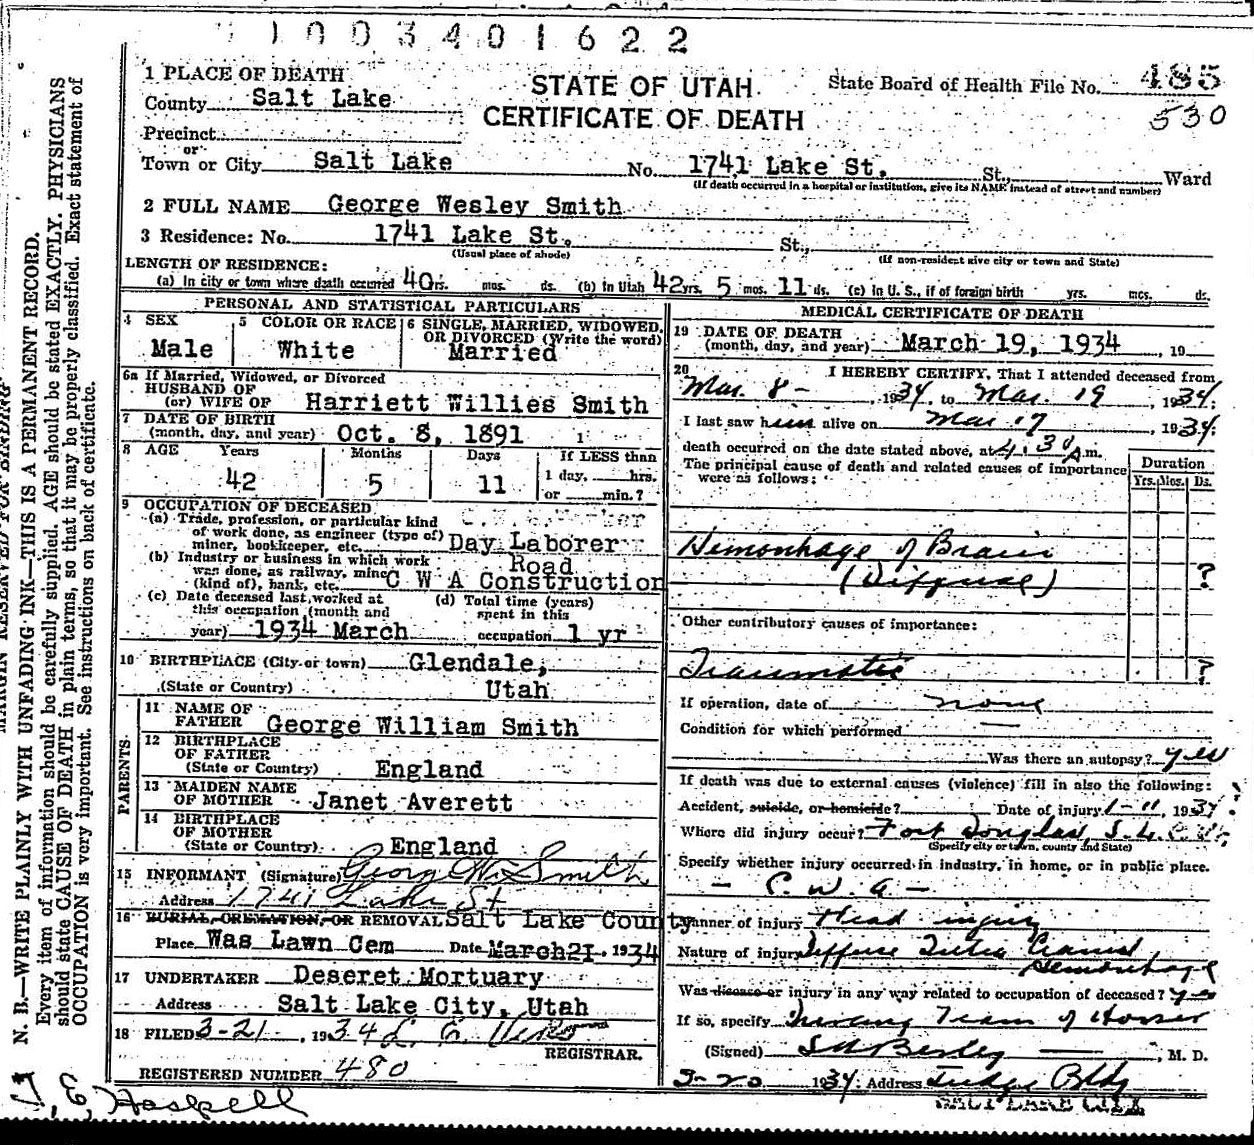 1003401622
1 PLACE OF DEATH
STATE OF UTAH
CERTIFICATE OF DEATH
State Board of Health File No. 485
530
County Salt Lake
Precinct
or
Town or City Salt Lake No. 1741 Lake St. St., Ward
(If death occurred in a hospital or institution, give its NAME instead of street and number)
2 FULL NAME George Wesley Smith
3 Residence: No. 1741 Lake St. St.,
(Usual place of abode) (If non-resident give city or town and State)
LENGTH OF RESIDENCE:
(a) In city or town where death occurred 40 yrs. mos. ds. (b) In Utah 42 yrs. 5 mos. 11 ds. (c) in U. S., if of foreign birth yrs. mos. ds.
PERSONAL AND STATISTICAL PARTICULARS
4 SEX Male
5 COLOR OR RACE White
6 SINGLE, MARRIED, WIDOWED, OR DIVORCED (Write the word) Married
6a If Married, Widowed, or Divorced
HUSBAND OF
(or) WIFE OF Harriett Willies Smith
7 DATE OF BIRTH
(month, day, and year) Oct. 8, 1891 1
8 AGE Years Months Days If LESS than
42 5 11 1 day, hrs.
or min.?
9 OCCUPATION OF DECEASED
(a) Trade, profession, or particular kind
of work done, as engineer (type of)
miner, bookkeeper, etc. Day Laborer
(b) Industry or business in which work Road
was done, as railway, mine
(kind of), bank, etc. C W A Construction
(c) Date deceased last worked at
this occupation (month and
year) 1934 March
(d) Total time (years)
spent in this
occupation 1 yr
10 BIRTHPLACE (City or town) Glendale,
(State or Country) Utah
PARENTS
11 NAME OF
FATHER George William Smith
12 BIRTHPLACE
OF FATHER
(State or Country) England
13 MAIDEN NAME
OF MOTHER Janet Averett
14 BIRTHPLACE
OF MOTHER
(State or Country) England
15 INFORMANT (Signature) George W. Smith
Address 1741 Lake St
16 BURIAL, CREMATION, OR REMOVAL Salt Lake County
Place Was Lawn Cem Date March 21, 1934
17 UNDERTAKER Deseret Mortuary
Address Salt Lake City, Utah
18 FILED 3-21, 1934
REGISTRAR.
REGISTERED NUMBER 480
J. E. Haskell
MEDICAL CERTIFICATE OF DEATH
19 DATE OF DEATH
(month, day, and year) March 19, 1934, 19
20 I HEREBY CERTIFY, That I attended deceased from
Mar. 8 - , 1934, to Mar. 19, 1934.
I last saw him alive on Mar 17, 1934;
death occurred on the date stated above, at 4.30 A.m.
The principal cause of death and related causes of importance
were as follows:
Duration
Yrs. Mos. Ds.
Hemonhage of Brain
(Diffuse) ?
Other contributory causes of importance:
Traumatic ?
If operation, date of none
Condition for which performed —
Was there an autopsy? yes
If death was due to external causes (violence) fill in also the following:
Accident, suicide, or homicide? Date of injury 1-11, 1934
Where did injury occur? Fort Douglas, S. L.
(Specify city or town, county and State)
Specify whether injury occurred in industry, in home, or in public place.
- C. W. A -
Manner of injury Head injury
Nature of injury Diffuse Intra Cranial
Hemonhage
Was disease or injury in any way related to occupation of deceased? yes
If so, specify Driving Team of Horses
(Signed) , M. D.
3-20 1934 Address Judge Bldg
SALT LAKE CITY
MARGIN RESERVED FOR BINDING
N. B.—WRITE PLAINLY WITH UNFADING INK—THIS IS A PERMANENT RECORD.
Every item of information should be carefully supplied. AGE should be stated EXACTLY. PHYSICIANS
should state CAUSE OF DEATH in plain terms, so that it may be properly classified. Exact statement of
OCCUPATION is very important. See instructions on back of certificate.